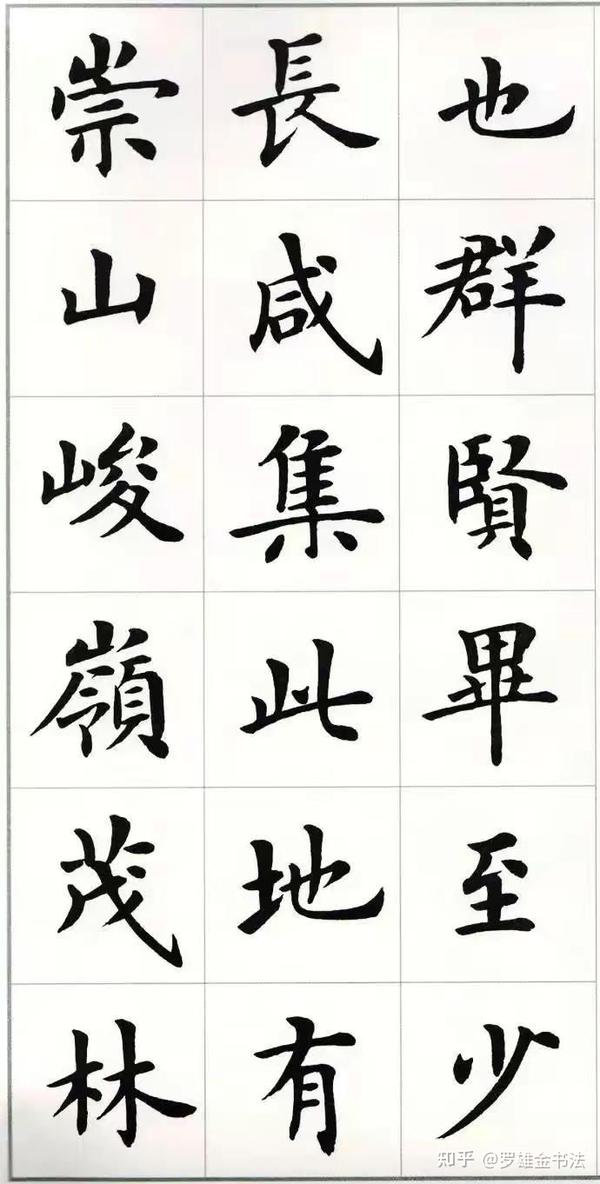 也群賢畢至少
長咸集此地有
崇山峻嶺茂林
知乎 @罗雄金书法